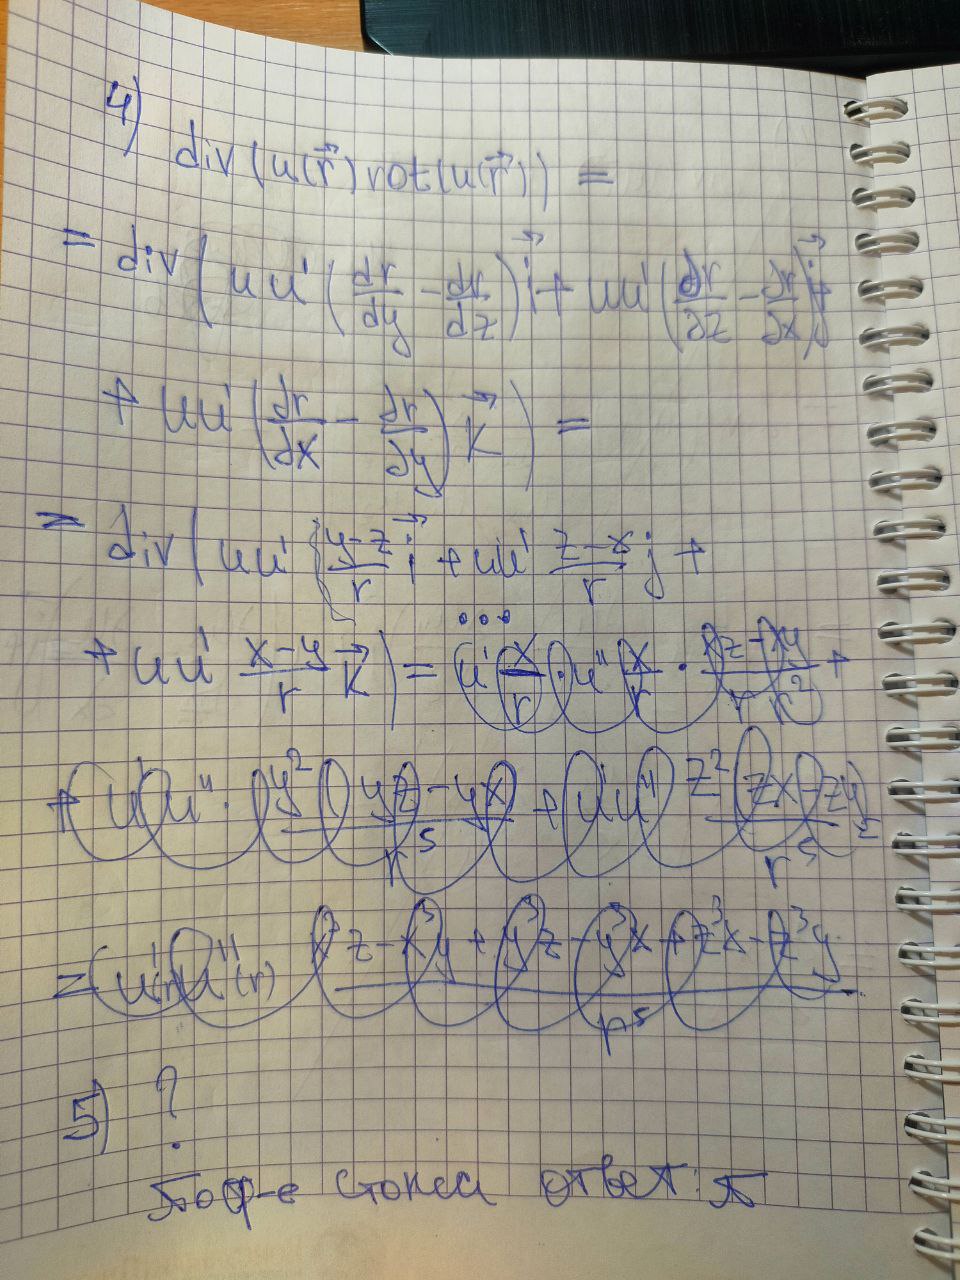 4)
div (u(r⃗) rot(u(r⃗)) =
= div ( uu' (dr/dy - dr/dz) i⃗ + uu' (∂r/∂z - ∂r/∂x) j⃗
+ uu' (∂r/∂x - ∂r/∂y) k⃗ ) =
= div ( uu' y-z/r i⃗ + uu' z-x/r j +
+ uu' x-y/r k⃗ ) = ... u' x/r · u'' x/r · xz-xy/r r² +
+ u'u'' · y² yz-yx/r⁵ + u'u'' z² zx-zy/r⁵ =
= u'(r)u''(r) x³z-x³y+y³z-y³x+z³x-z³y/r⁵
5) ?
По ф-е стокса ответ: π